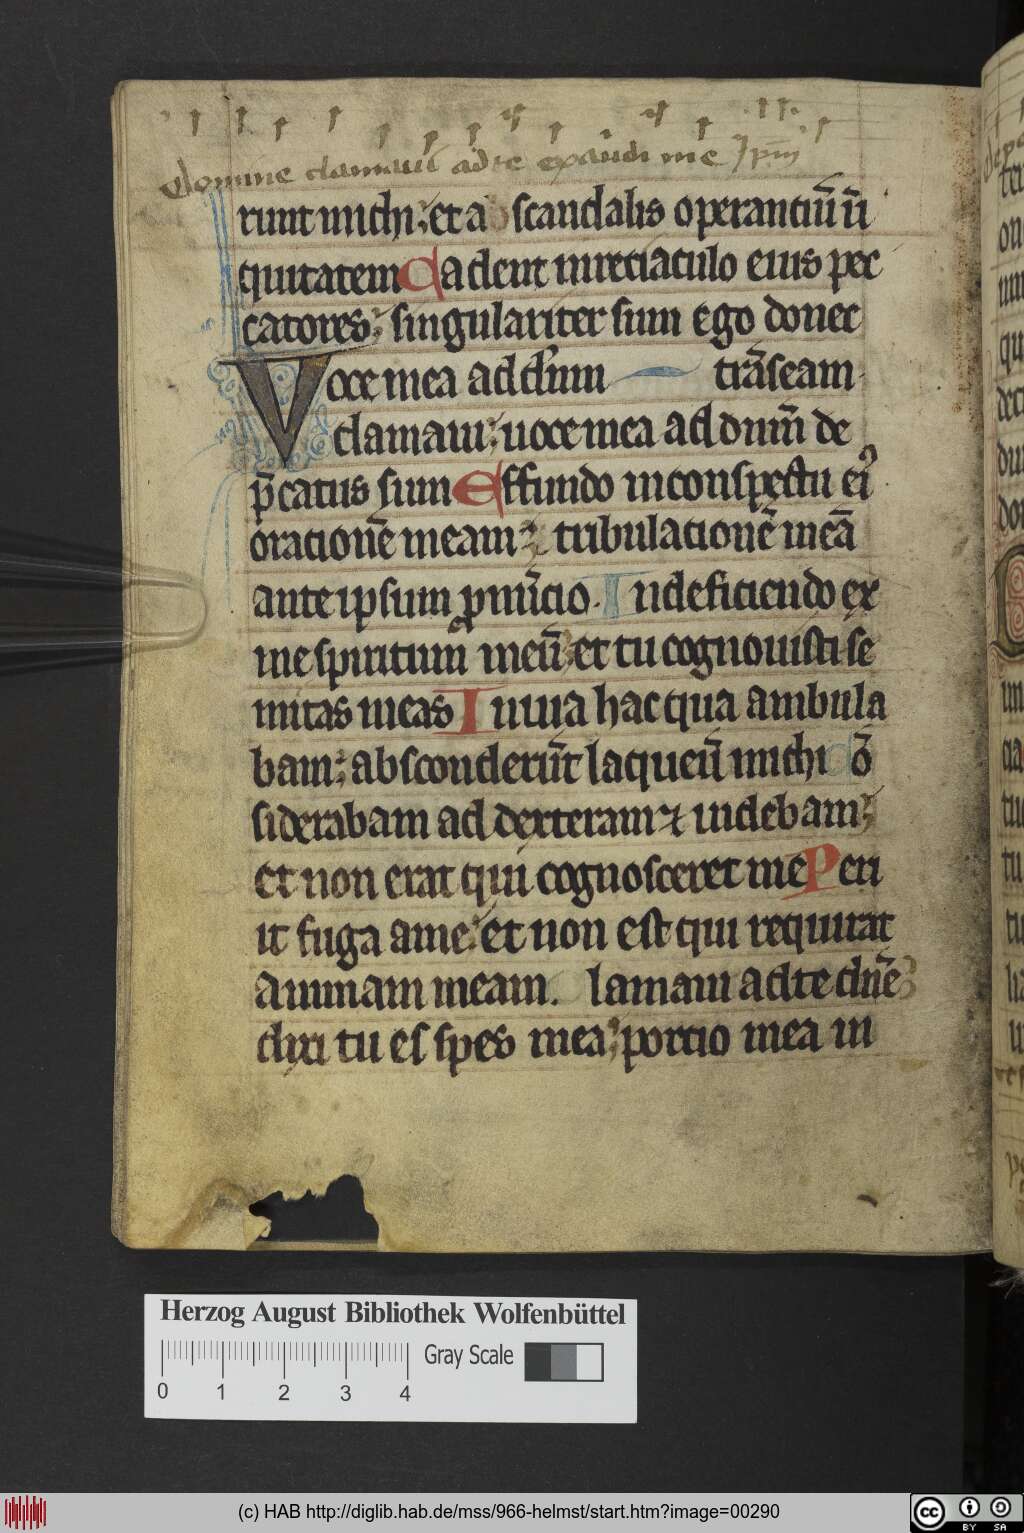 Domine clamaui ad te exaudi me Ipm̄
runt michi; et a scandalis operantiū ini
quitatem Cadent in reciaculo eius pec
catores; singulariter sum ego donec
Voce mea ad dn̄m transeam
clamaui; uoce mea ad dn̄m de
p̄catus sum Effundo in conspectu eiꝰ
orationē meam; tribulationē meā
ante ipsum ꝓnūcio. In deficiendo ex
me spiritum meū; et tu cognouisti se
mitas meas In uia hac qua ambula
bam; absconderūt laqueū michi Cō
siderabam ad dexteram ⁊ uidebam;
et non erat qui cognosceret me Peri
it fuga a me; et non est qui requirat
animam meam. lamaui ad te dn̄e
dixi tu es spes mea; portio mea in
Herzog August Bibliothek Wolfenbüttel
Gray Scale
0 1 2 3 4
(c) HAB http://diglib.hab.de/mss/966-helmst/start.htm?image=00290
cc BY SA